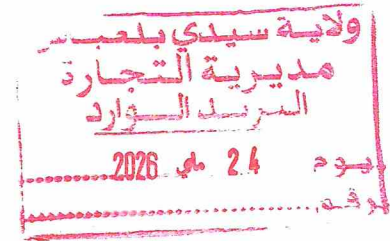 ولاية سيدي بلعباس
مديرية التجارة
البريد الوارد
يوم 24 ماي 2026
رقم